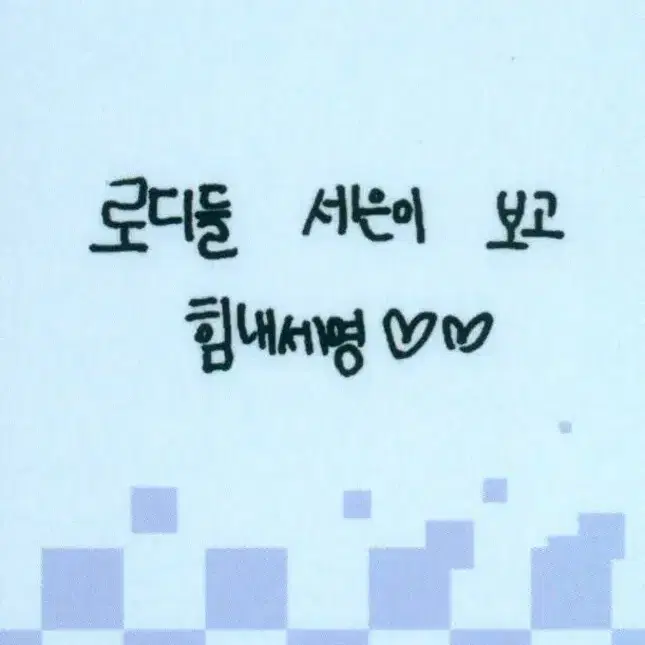 로디들 세은이 보고
힘내세명 ♡♡